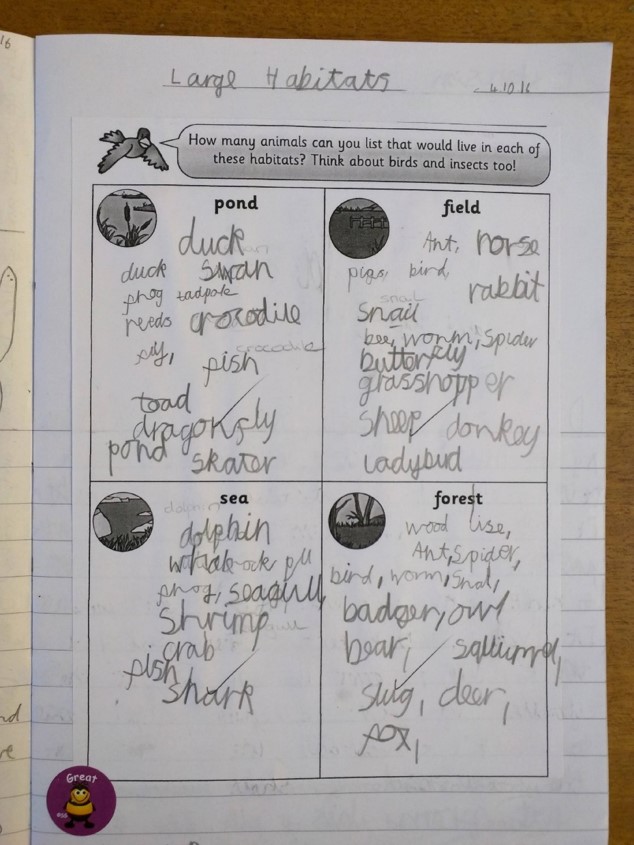 16
Large Habitats
4.10.16
How many animals can you list that would live in each of
these habitats? Think about birds and insects too!
pond
duck
duck swan
phog tadpole
reeds crocodile
crocodile
fish
toad
dragonfly
pond
skater
field
Ant, horse
pigs, bird,
rabbit
snail
snail
bee, worm, Spider
butterfly
grasshopper
sheep donkey
ladybird
sea
dolphin
dolphin
phog, seagull
Shrimp
crab
fish
shark
forest
wood lise,
Ant, Spider,
bird, worm, Snal,
badger, owl
bear,
slug, deer,
fox,
Great